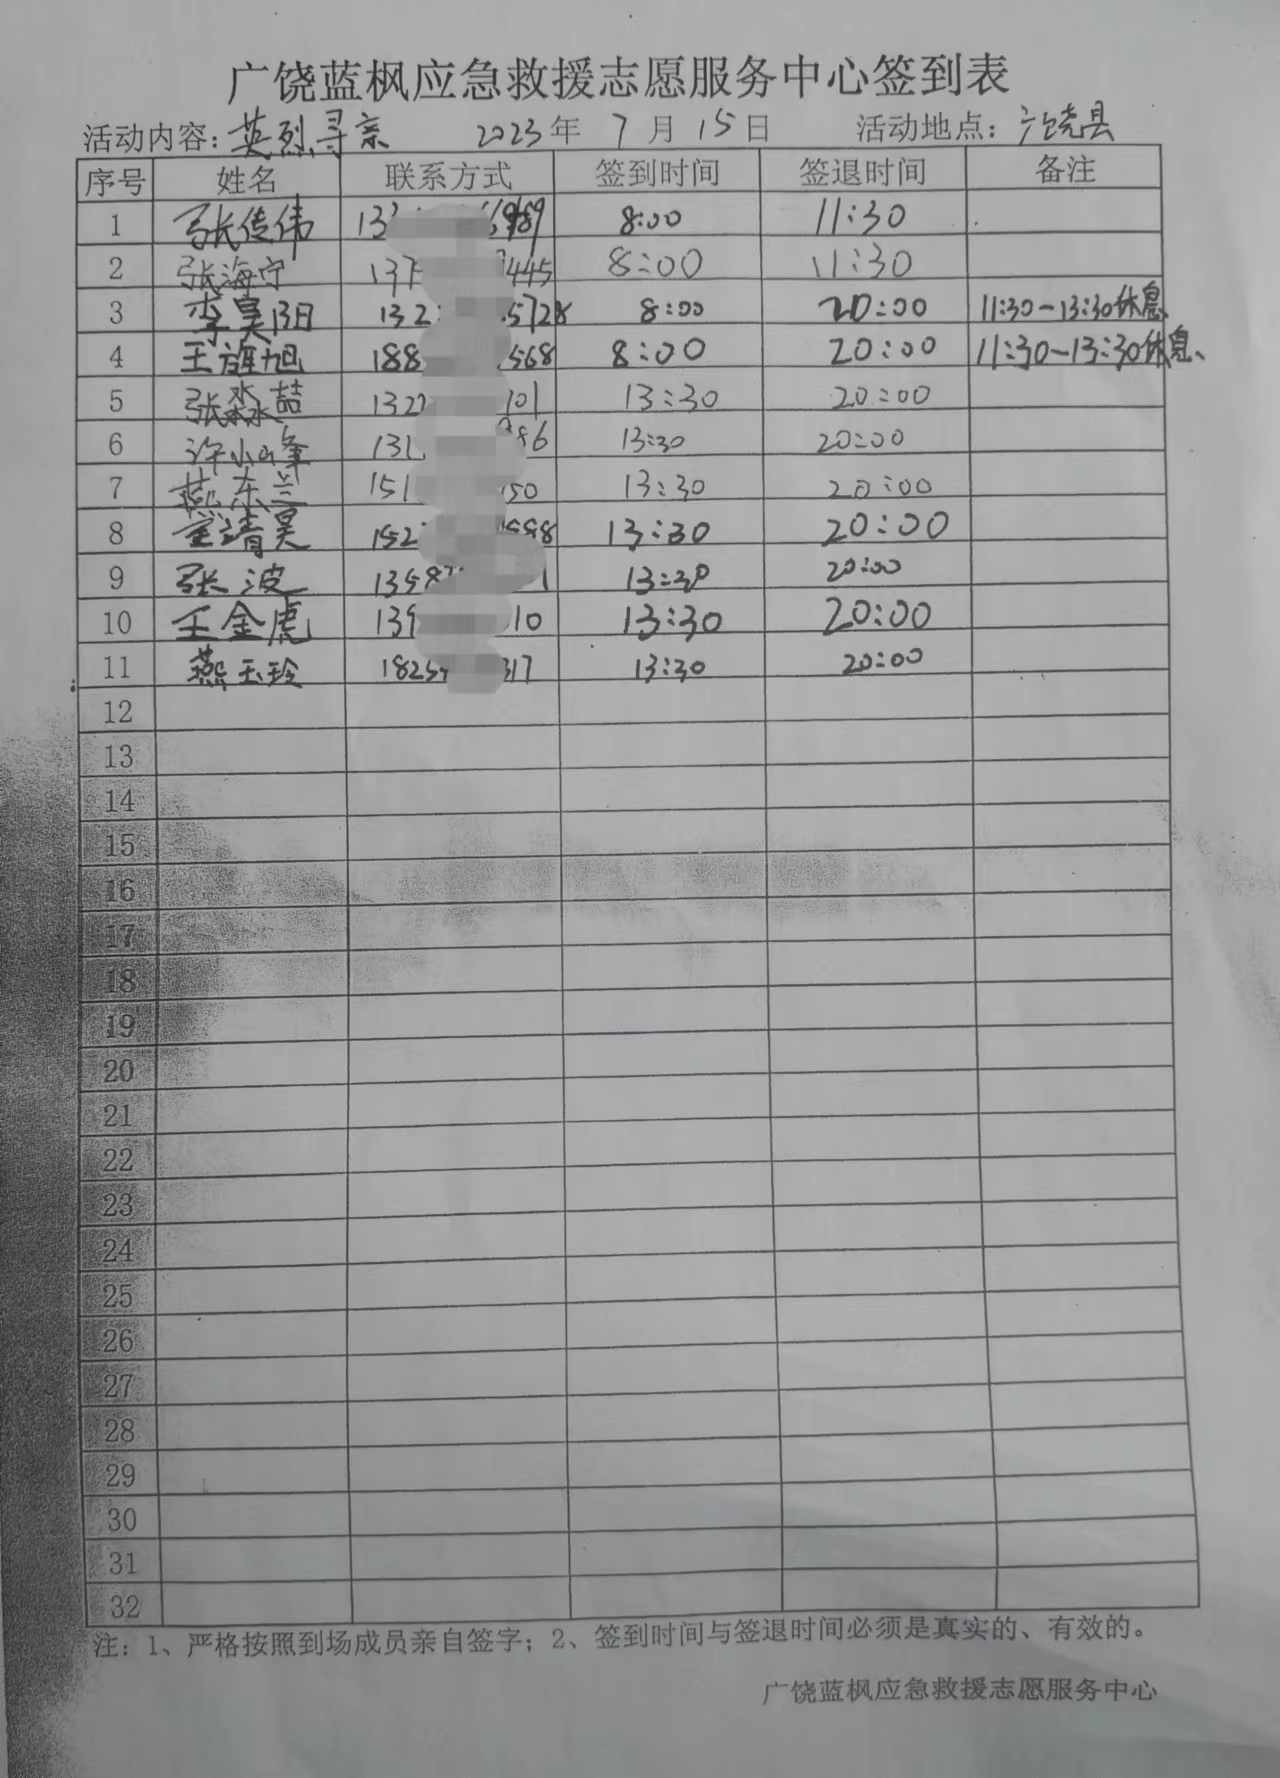 广饶蓝枫应急救援志愿服务中心签到表
活动内容：英烈寻亲 2023年 7月 15日 活动地点：广饶县
序号 姓名 联系方式 签到时间 签退时间 备注
1 张传伟 8:00 11:30
2 张海宁 445 8:00 11:30
3 李昊阳 132 5728 8:00 20:00 11:30-13:30休息
4 王旌旭 188 568 8:00 20:00 11:30-13:30休息、
5 张淼喆 132 101 13:30 20:00
6 许小峰 131 86 13:30 20:00
7 燕东兰 151 50 13:30 20:00
8 靖昊 152 13:30 20:00
9 张波 13:30 20:00
10 王金虎 139 10 13:30 20:00
11 燕玉玲 1825 317 13:30 20:00
12
13
14
15
16
17
18
19
20
21
22
23
24
25
26
27
28
29
30
31
32
注：1、严格按照到场成员亲自签字；2、签到时间与签退时间必须是真实的、有效的。
广饶蓝枫应急救援志愿服务中心